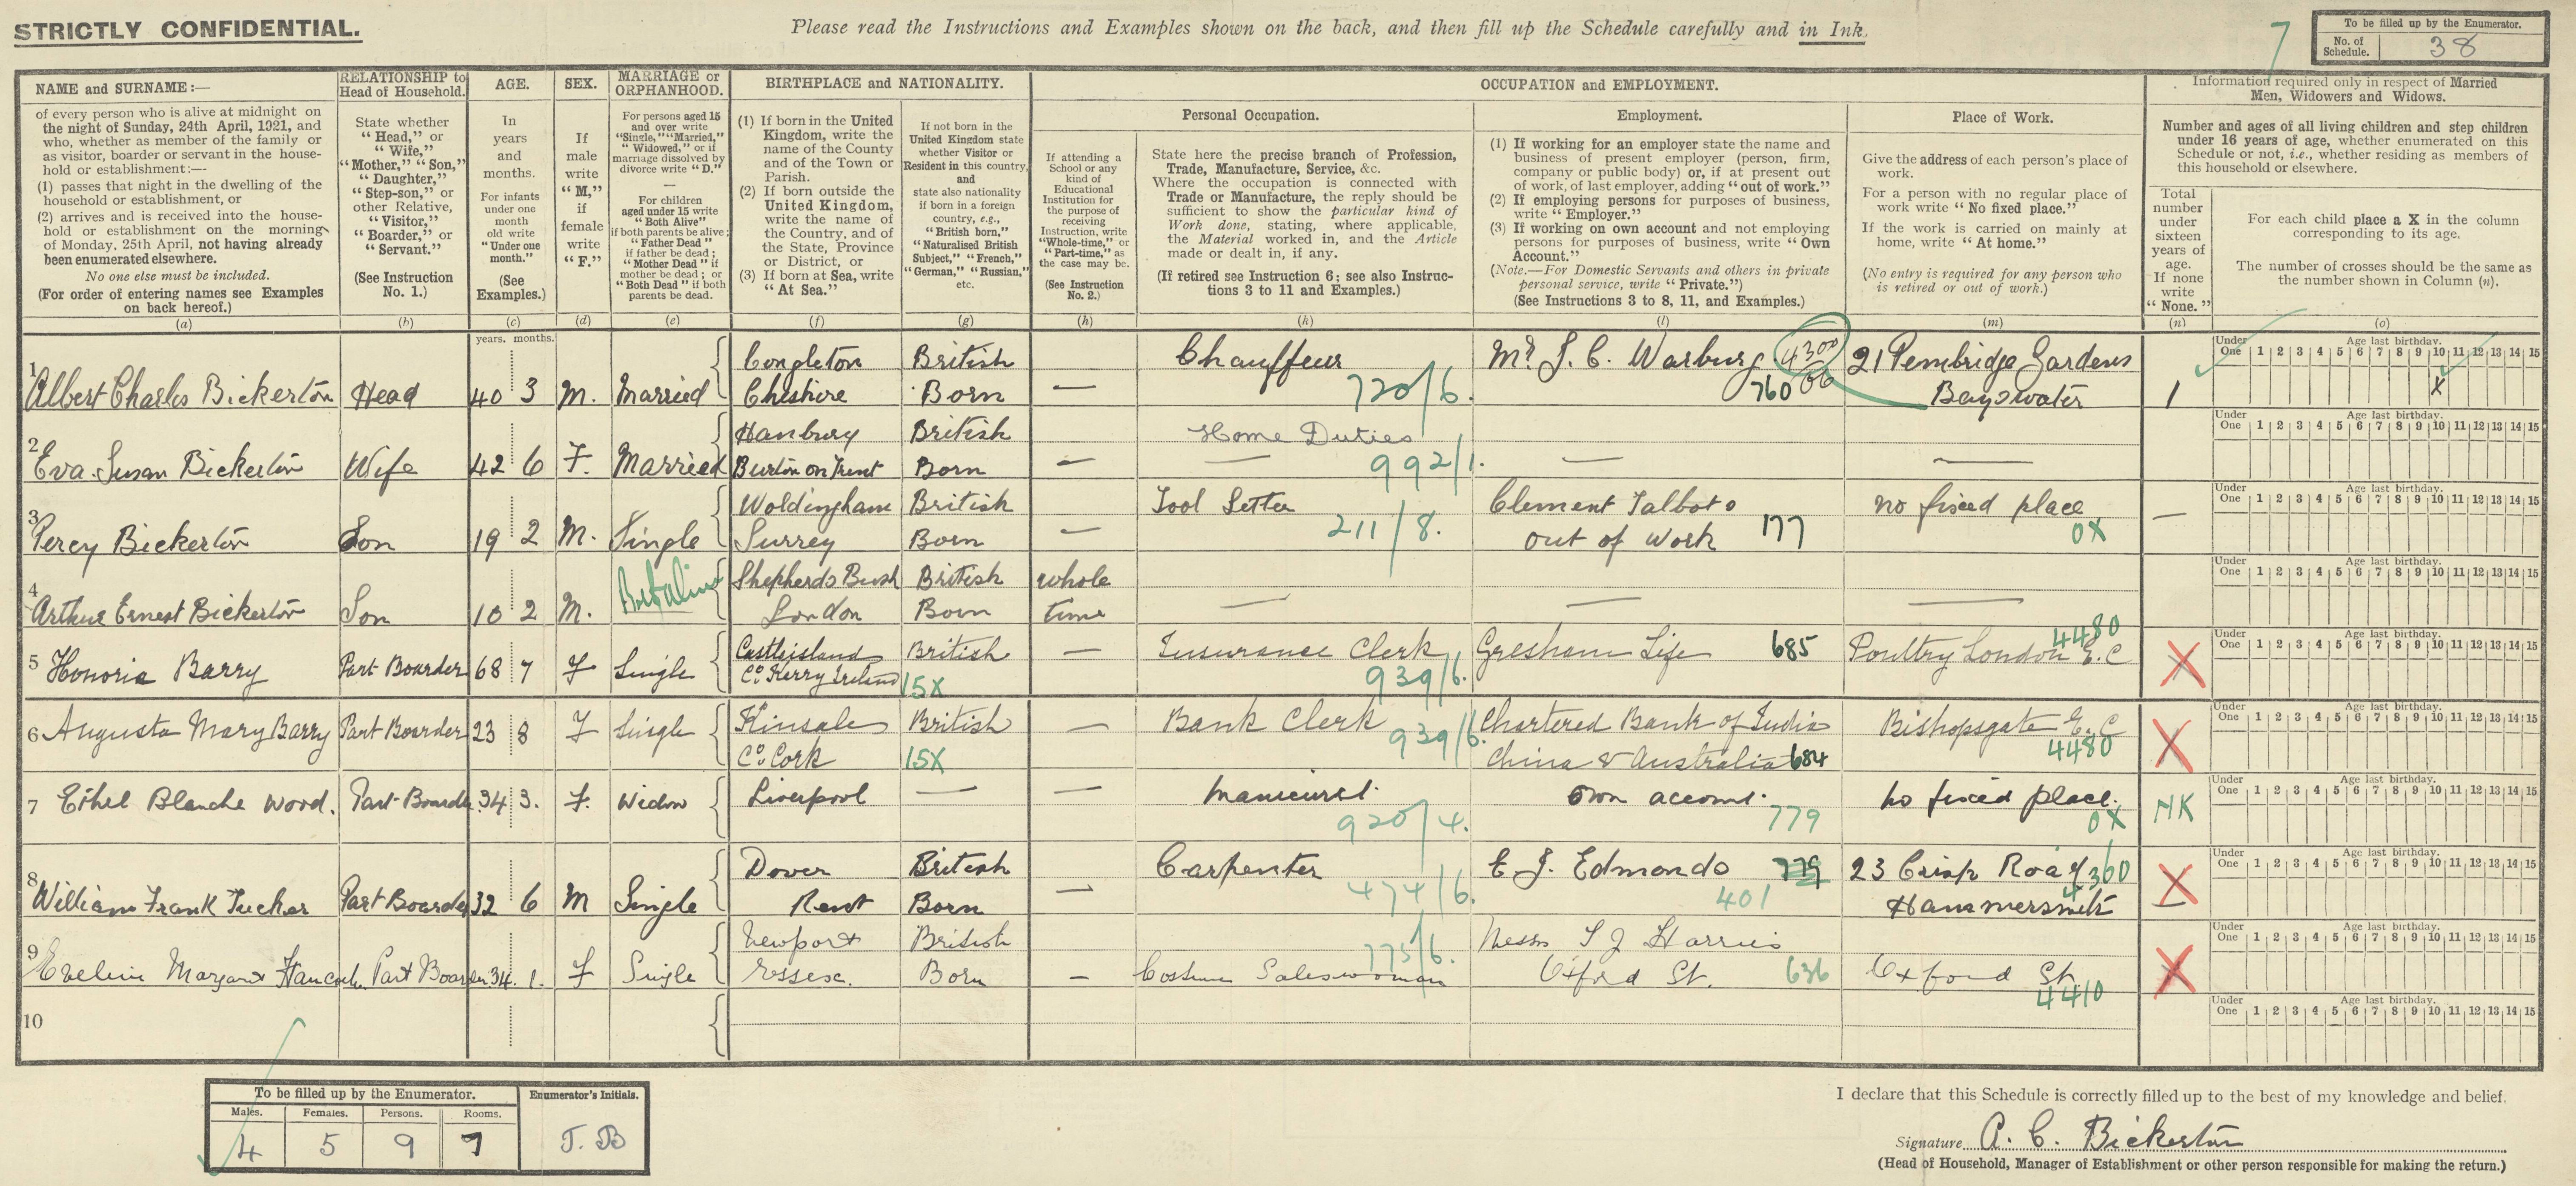 STRICTLY CONFIDENTIAL.
Please read the Instructions and Examples shown on the back, and then fill up the Schedule carefully and in Ink.
7
To be filled up by the Enumerator.
No. of Schedule. 38
NAME and SURNAME:—
of every person who is alive at midnight on
the night of Sunday, 24th April, 1921, and
who, whether as member of the family or
as visitor, boarder or servant in the house-
hold or establishment:—
(1) passes that night in the dwelling of the
household or establishment, or
(2) arrives and is received into the house-
hold or establishment on the morning
of Monday, 25th April, not having already
been enumerated elsewhere.
No one else must be included.
(For order of entering names see Examples
on back hereof.)
(a)
RELATIONSHIP to
Head of Household.
State whether
"Head," or
"Wife,"
"Mother," "Son,"
"Daughter,"
"Step-son," or
other Relative,
"Visitor,"
"Boarder," or
"Servant."
(See Instruction
No. 1.)
(b)
AGE.
In
years
and
months.
For infants
under one
month
old write
"Under one
month."
(See
Examples.)
(c)
years. months.
SEX.
If
male
write
"M,"
if
female
write
"F."
(d)
MARRIAGE or
ORPHANHOOD.
For persons aged 15
and over write
"Single," "Married,"
"Widowed," or if
marriage dissolved by
divorce write "D."
—
For children
aged under 15 write
"Both Alive"
if both parents be alive;
"Father Dead"
if father be dead;
"Mother Dead" if
mother be dead; or
"Both Dead" if both
parents be dead.
(e)
BIRTHPLACE and NATIONALITY.
(1) If born in the United
Kingdom, write the
name of the County
and of the Town or
Parish.
(2) If born outside the
United Kingdom,
write the name of
the Country, and of
the State, Province
or District, or
(3) If born at Sea, write
"At Sea."
(f)
If not born in the
United Kingdom state
whether Visitor or
Resident in this country,
and
state also nationality
if born in a foreign
country, e.g.,
"British born,"
"Naturalised British
Subject," "French,"
"German," "Russian,"
etc.
(g)
OCCUPATION and EMPLOYMENT.
If attending a
School or any
kind of
Educational
Institution for
the purpose of
receiving
Instruction, write
"Whole-time," or
"Part-time," as
the case may be.
(See Instruction
No. 2.)
(h)
Personal Occupation.
State here the precise branch of Profession,
Trade, Manufacture, Service, &c.
Where the occupation is connected with
Trade or Manufacture, the reply should be
sufficient to show the particular kind of
Work done, stating, where applicable,
the Material worked in, and the Article
made or dealt in, if any.
(If retired see Instruction 6: see also Instruc-
tions 3 to 11 and Examples.)
(k)
Employment.
(1) If working for an employer state the name and
business of present employer (person, firm,
company or public body) or, if at present out
of work, of last employer, adding "out of work."
(2) If employing persons for purposes of business,
write "Employer."
(3) If working on own account and not employing
persons for purposes of business, write "Own
Account."
(Note.—For Domestic Servants and others in private
personal service, write "Private.")
(See Instructions 3 to 8, 11, and Examples.)
(l)
Place of Work.
Give the address of each person's place of
work.
For a person with no regular place of
work write "No fixed place."
If the work is carried on mainly at
home, write "At home."
(No entry is required for any person who
is retired or out of work.)
(m)
Information required only in respect of Married
Men, Widowers and Widows.
Number and ages of all living children and step children
under 16 years of age, whether enumerated on this
Schedule or not, i.e., whether residing as members of
this household or elsewhere.
Total
number
under
sixteen
years of
age.
If none
write
"None."
(n)
For each child place a X in the column
corresponding to its age.
The number of crosses should be the same as
the number shown in Column (n).
(o)
1 Albert Charles Bickerton Head 40 3 M. Married Congleton Cheshire British Born — Chauffeur 720/6. Mr J. C. Warburg 4300 760 06 21 Pembridge Gardens Bayswater 1 X
Under One Age last birthday. 1 2 3 4 5 6 7 8 9 10 11 12 13 14 15
2 Eva Susan Bickerton Wife 42 6 F. Married Hanbury Burton on Trent British Born — Home Duties — 992/1. — —
Under One Age last birthday. 1 2 3 4 5 6 7 8 9 10 11 12 13 14 15
3 Percy Bickerton Son 19 2 M. Single Woldingham Surrey British Born — Tool Setter 211/8. Clement Talbots out of Work 177 no fixed place 0X —
Under One Age last birthday. 1 2 3 4 5 6 7 8 9 10 11 12 13 14 15
4 Arthur Ernest Bickerton Son 10 2 M. Both alive Shepherds Bush London British Born whole time — — —
Under One Age last birthday. 1 2 3 4 5 6 7 8 9 10 11 12 13 14 15
5 Honoria Barry Part Boarder 68 7 F Single Castleisland Co Kerry Ireland British 15X — Insurance Clerk 939/6. Gresham Life 685 Poultry London E.C 4480 X
Under One Age last birthday. 1 2 3 4 5 6 7 8 9 10 11 12 13 14 15
6 Augusta Mary Barry Part Boarder 23 8 F Single Kinsale Co Cork British 15X — Bank Clerk 939/6. Chartered Bank of India China & Australia 684 Bishopsgate E.C 4480 X
Under One Age last birthday. 1 2 3 4 5 6 7 8 9 10 11 12 13 14 15
7 Ethel Blanche Wood. Part-Boarder 34 3. F. Widow Liverpool — — Manicurist. 920/4. Own account. 779 No fixed place. 0X NK
Under One Age last birthday. 1 2 3 4 5 6 7 8 9 10 11 12 13 14 15
8 William Frank Tucker Part Boarder 32 6 M Single Dover Kent British Born — Carpenter 474/6. E J. Edmonds 779 401 23 Crisp Road Hammersmith 4360 X
Under One Age last birthday. 1 2 3 4 5 6 7 8 9 10 11 12 13 14 15
9 Eveline Margaret Hancock. Part Boarder 34. 1. F Single Newport Essex. British Born — Costume Saleswoman 775/6. Messrs T J Harries Oxford St. 636 Oxford St. 4410 X
Under One Age last birthday. 1 2 3 4 5 6 7 8 9 10 11 12 13 14 15
10
Under One Age last birthday. 1 2 3 4 5 6 7 8 9 10 11 12 13 14 15
To be filled up by the Enumerator.
Males. Females. Persons. Rooms.
4 5 9 7
Enumerator's Initials.
T. B
I declare that this Schedule is correctly filled up to the best of my knowledge and belief.
Signature A. C. Bickerton
(Head of Household, Manager of Establishment or other person responsible for making the return.)